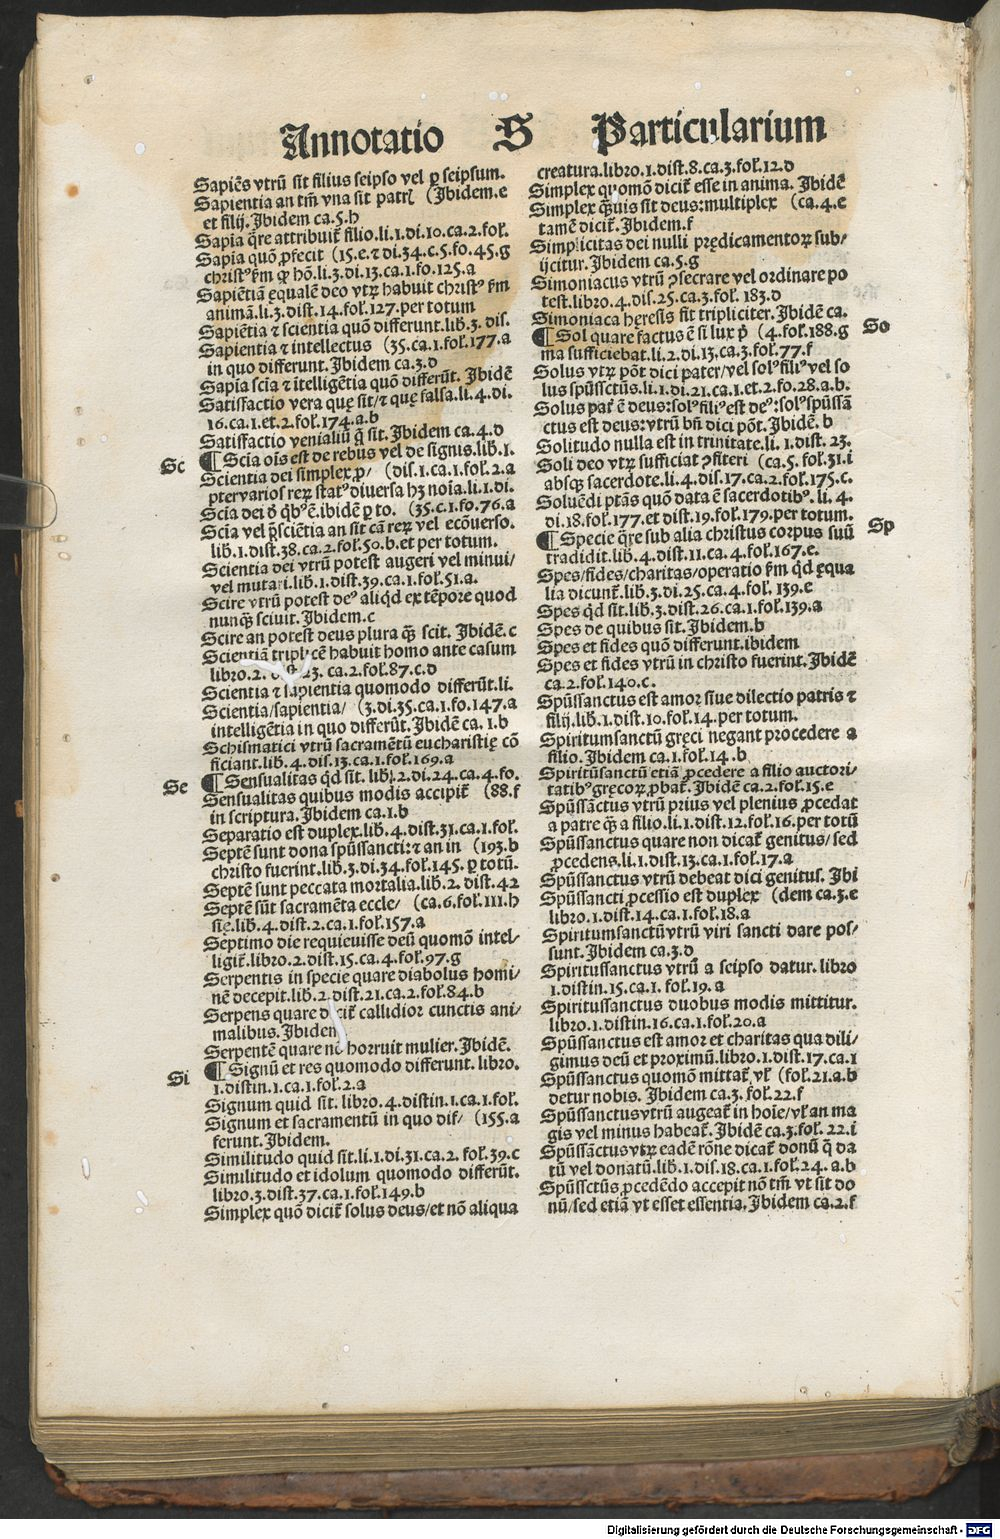 Annotatio S Particularium
Sapiẽs vtrũ sit filius seipso vel ꝑ seipsum.
Sapientia an tm̃ vna sit patrꝭ (Ibidem.e
et filij. Ibidem ca.5.h
Sapia q̃re attribuit̃ filio.li.1.di.10.ca.2.fol.
Sapia quõ ꝓfecit (15.e.⁊ di.34.c.5.fo.45.g
christꝰ s̃m ꝙ hõ.li.3.di.13.ca.1.fo.125.a
Sapiẽtiã ęqualẽ deo vtꝝ habuit christꝰ s̃m
animã.li.3.dist.14.fol.127.per totum
Sapiẽtia ⁊ scientia quõ differunt.lib.3. dis.
Sapientia ⁊ intellectus (35.ca.1.fol.177.a
in quo differunt. Ibidem ca.3.d
Sapia scĩa ⁊ itelligẽtia quõ differũt. Ibidẽ
Satisfactio vera quę sit/⁊ quę falsa.li.4.di.
16.ca.1.et.2.fol.174.a.b
Satisfactio venialiũ q̃ sit. Ibidem ca.4.d
Sc
¶ Scia oĩs est de rebus vel de signis.lib.1.
Scientia dei simplex ꝓ/ (dis.1.ca.1.fol.2.a
ptervarios reꝝ statꝰ diversa hꝫ noĩa.li.1.di.
Scĩa dei ẽ q̃bꝰ ẽ.ibidẽ ꝑ to. (35.c.1.fo.76.a
Scĩa vel p̃sciẽtia an sit cã reꝝ vel ecõuerso.
lib.1.dist.38.ca.2.fol.50.b.et per totum.
Scientia dei vtrũ potest augeri vel minui/
vel mutari.lib.1.dist.39.ca.1.fol.51.a.
Scire vtrũ potest deꝰ aliq̃d ex tẽpore quod
nunq̃ꝫ sciuit. Ibidem.c
Scire an potest deus plura q̃ꝫ scit. Ibidẽ.c
Scientiã triplicẽ habuit homo ante casum
libro.2. dist.23. ca.2.fol.87.c.d
Scientia ⁊ sapientia quomodo differũt.li.
Scientia/sapientia/ (3.di.35.ca.1.fo.147.a
intelligẽtia in quo differũt. Ibidẽ ca. 1.b
Schismatici vtrũ sacramẽtũ eucharistię cõ
ficiant.lib.4.dis.13.ca.1.fol.169.a
Se
¶ Sensualitas q̃d sit. lib.2.di.24.ca.4.fo.
Sensualitas quibus modis accipit̃ (88.f
in scriptura. Ibidem ca.1.b
Separatio est duplex.lib.4.dist.31.ca.1.fol.
Septẽ sunt dona spũssancti:⁊ an in (193.b
christo fuerint.lib.3.di.34.fol.145. ꝑ totũ.
Septẽ sunt peccata mortalia.lib.2. dist.42
Septẽ sũt sacramẽta eccle/ (ca.6.fol.111.h
się.lib.4.dist.2.ca.1.fol.157.a
Septimo die requieuisse deũ quomõ intel-
ligit̃.libro.2.dist.15.ca.4.fol.97.g
Serpentis in specie quare diabolus homi-
nẽ decepit.lib.2.dist.21.ca.2.fol.84.b
Serpens quare dicit̃ callidior cunctis ani/
malibus. Ibidem
Serpentẽ quare nõ horruit mulier. Ibidẽ.
Si
¶ Signũ et res quomodo differunt. libro.
1.distin.1.ca.1.fol.2.a
Signum quid sit. libro.4.distin.1.ca.1.fol.
Signum et sacramentũ in quo dif/ (155.a
ferunt. Ibidem.
Similitudo quid sit.li.1.di.31.ca.2. fol.39.c
Similitudo et idolum quomodo differũt.
libro.3.dist.37.ca.1.fol.149.b
Simplex quõ dicit̃ solus deus/et nõ aliqua
creatura.libro.1.dist.8.ca.3.fol.12.d
Simplex quomõ dicit̃ esse in anima. Ibidẽ
Simplex q̃ꝫuis sit deus:multiplex (ca.4.e
tamẽ dicit̃. Ibidem.f
Simplicitas dei nulli prędicamentoꝝ sub/
ijcitur. Ibidem ca.5.g
Simoniacus vtrũ ꝯsecrare vel ordinare po
test.libro.4.dis.25.ca.3.fol. 183.d
Simoniaca hęresis fit tripliciter. Ibidẽ ca.
So
¶ Sol quare factus ẽ si lux p̃ (4.fol.188.g
ma sufficiebat.li.2.di.13.ca.3.fol.77.f
Solus vtꝝ põt dici pater/vel solꝰ filiꝰ vel so
lus spũssctũs.li.1.di.21.ca.1.et.2.fo.28.a.b.
Solus pat̃ ẽ deus:solꝰ filiꝰ est deꝰ:solꝰ spũssã
ctus est deus:vtrũ bñ dici põt. Ibidẽ. b
Solitudo nulla est in trinitate.li. 1.dist. 23.
Soli deo vtꝝ sufficiat ꝯfiteri (ca.5. fol.31.i
absqꝫ sacerdote.li.4.dis.17.ca.2.fol.175.c.
Soluẽdi ptãs quõ data ẽ sacerdotibꝰ. li. 4.
di.18.fol.177.et dist.19.fol.179.per totum.
Sp
¶ Specie q̃re sub alia christus corpus suũ
tradidit.lib.4.dist.11.ca.4.fol.167.e.
Spes/fides/charitas/operatio s̃m q̃d ęqua
lia dicunt̃.lib.3.di.25.ca.4.fol. 139.e
Spes q̃d sit.lib.3.dist.26.ca.1.fol.139.a
Spes de quibus sit. Ibidem.b
Spes et fides quõ differunt.ibidem
Spes et fides vtrũ in christo fuerint. Ibidẽ
ca.2.fol.140.c.
Spũssanctus est amor siue dilectio patris ⁊
filij.lib.1.dist.10.fol.14.per totum.
Spiritumsanctũ gręci negant procedere a
filio. Ibidem ca.1.fol.14.b
Spiritũsanctũ etiã ꝓcedere a filio auctori/
tatibꝰ gręcoꝝ ꝓbat̃. Ibidẽ ca.2.fol.15.e
Spũssãctus vtrũ prius vel plenius ꝓcedat
a patre q̃ꝫ a filio.li.1.dist.12.fol.16.per totũ
Spũssanctus quare non dicat̃ genitus/sed
ꝓcedens.li.1.dist.13.ca.1.fol.17.a
Spũssanctus vtrũ debeat dici genitus. Ibi
Spũssancti ꝓcessio est duplex (dem ca.3.e
libro.1.dist.14.ca.1.fol.18.a
Spiritumsanctũvtrũ viri sancti dare pos/
sunt. Ibidem ca.3.d
Spiritussanctus vtrũ a seipso datur. libro
1.distin.15.ca.1. fol.19.a
Spiritussanctus duobus modis mittitur.
libro.1.distin.16.ca.1.fol.20.a
Spũssanctus est amor et charitas qua dili/
gimus deũ et proximũ.libro.1.dist.17.ca.1
Spũssanctus quomõ mittat̃ vl̃ (fol.21.a.b
detur nobis. Ibidem ca.3.fol.22.f
Spũssanctusvtrũ augeat̃ in hoĩe/vl̃ an ma
gis vel minus habeat̃. Ibidẽ ca.3.fol. 22.i
Spũssãctus vtꝝ eadẽ rõne dicat̃ donũ q̃ da
tũ vel donatũ.lib.1.dis.18.ca.1.fol.24. a.b
Spũssctũs ꝓcedẽdo accepit nõ tm̃ vt sit do
nũ/sed etiã vt esset essentia. Ibidem ca.2.f
Digitalisierung gefördert durch die Deutsche Forschungsgemeinschaft - DFG